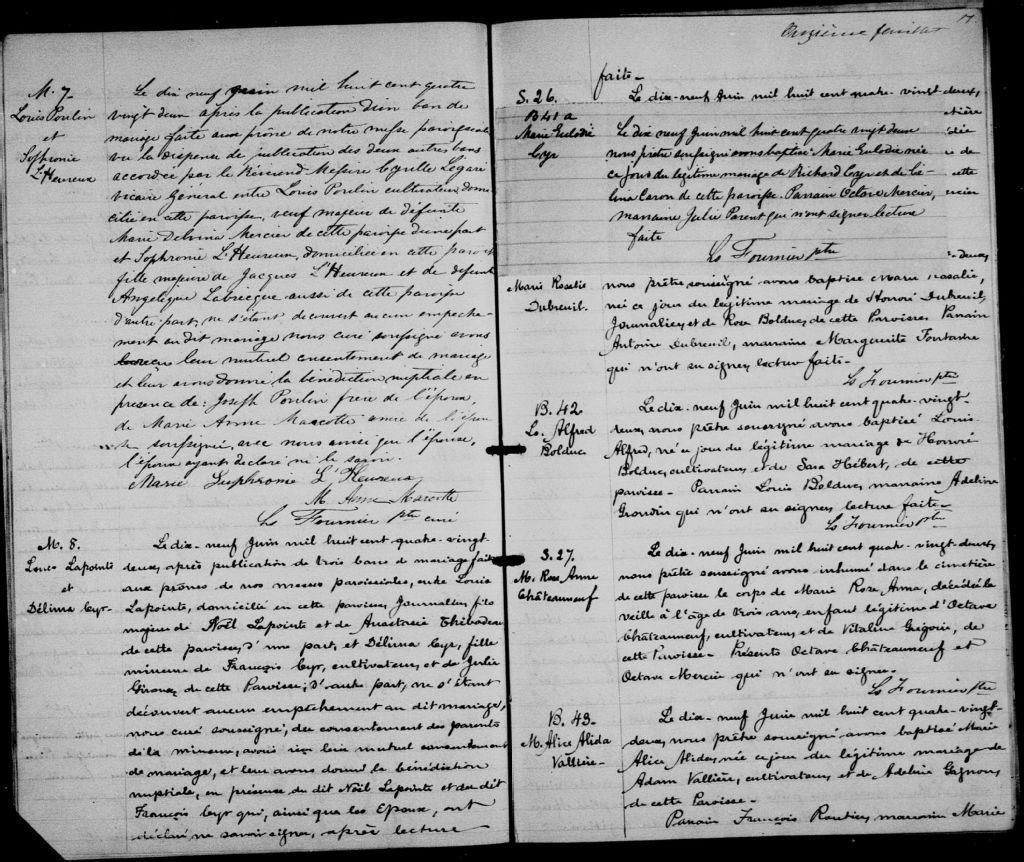 M. 7
Louis Poulin
et
Sophronie
L'Heureux
Le dix neuf juin mil huit cent quatre
vingt deux après la publication d'un ban de
mariage faite aux prône de notre messe paroissiale
vu la dispense de publication des deux autres bans
accordée par le Révérend Messire Cyrille Légaré
vicaire Général entre Louis Poulin cultivateur domi
cilié en cette paroisse, veuf majeur de défunte
Marie Delvina Mercier de cette paroisse d'une part
et Sophronie L'Heureux, domiciliée en cette paroisse
fille majeure de Jacques L'Heureux et de défunte
Angelique Labrecque aussi de cette paroisse
d'autre part, ne s'étant découvert aucun empeche
ment au dit mariage nous curé soussigné avons
leur mutuel consentement de mariage
et leur avons donné la bénédiction nuptiale en
presence de: Joseph Poulin frere de l'époux,
de Marie Anne Marcotte amie de l'épouse
soussigné, avec nous ainsi que l'épouse,
l'époux ayant declaré ne le savoir.
Marie Suphronie L'Heureux
M. Anne Marcotte
Ls Fournier ptre curé
M. 8.
Louis Lapointe
et
Délima Cyr.
Le dix-neuf Juin mil huit cent quatre-vingt
deux, après publication de trois bans de mariage faite
aux prônes de nos messes paroissiales, entre Louis
Lapointe, domicilié en cette paroisse, Journalier, fils
majeur de Noël Lapointe et de Anastasie Thibodeau
de cette paroisse, d'une part, et Délima Cyr, fille
mineure de François Cyr, cultivateur, et de Julie
Giroux, de cette Paroisse, d'autre part, ne s'étant
découvert aucun empêchement au dit mariage,
nous curé soussigné, du consentement des parents
de la mineure, avons reçu leur mutuel consentement
de mariage, et leur avons donné la bénédiction
nuptiale, en présence du dit Noël Lapointe et du dit
François Cyr qui, ainsi que les Epoux, ont
déclaré ne savoir signer, après lecture
17
Onzième feuillet
faite-
S. 26.
Le dix-neuf Juin mil huit cent quatre-vingt-deux,
B 41 a
Marie Eulodie
Cyr
Le dix neuf Juin mil huit cent quatre vingt deux
nous prêtre soussigné avons baptisé Marie Eulodie née
ce jour du légitime mariage de Richard Cyr et de Cé-
lina Caron de cette paroisse. Parrain Octave Mercier,
marraine Julie Parent qui n'ont su signer lecture
faite
Ls Fournier ptre
Marie Rosalie
Dubreuil.
nous prêtre soussigné avons baptisé Marie Rosalie,
née ce jour du légitime mariage de Honoré Dubreuil,
Journalier, et de Rose Bolduc, de cette Paroisse. Parrain
Antoine Dubreuil, marraine Marguerite Fontaine
qui n'ont su signer, lecture faite-
Ls Fournier ptre
B. 42
Ls. Alfred
Bolduc
Le dix-neuf Juin mil huit cent quatre-vingt-
deux, nous prêtre soussigné avons baptisé Louis
Alfred, né ce jour du légitime mariage de Honoré
Bolduc, cultivateur, et de Sara Hébert, de cette
paroisse- Parrain Louis Bolduc, marraine Adeline
Grondin qui n'ont su signer, lecture faite-
Ls Fournier ptre
S. 27.
M. Rose Anna
Châteauneuf
Le dix-neuf Juin mil huit cent quatre-vingt-deux,
nous prêtre soussigné avons inhumé dans le cimetière
de cette paroisse le corps de Marie Rose Anna, décédée la
veille à l'âge de trois ans, enfant légitime d'Octave
Châteauneuf, cultivateur, et de Vitaline Grégoire, de
cette Paroisse- Présents Octave Châteauneuf et
Octave Mercier qui n'ont su signer-
Ls Fournier ptre
B. 43-
M. Alice Alida
Vallière-
Le dix-neuf Juin mil huit cent quatre-vingt-
deux, nous prêtre soussigné avons baptisé Marie
Alice Alida, née ce jour du légitime mariage de
Adam Vallière, cultivateur, et de Adeline Gagnon,
de cette Paroisse-
Parrain François Routier, marraine Marie